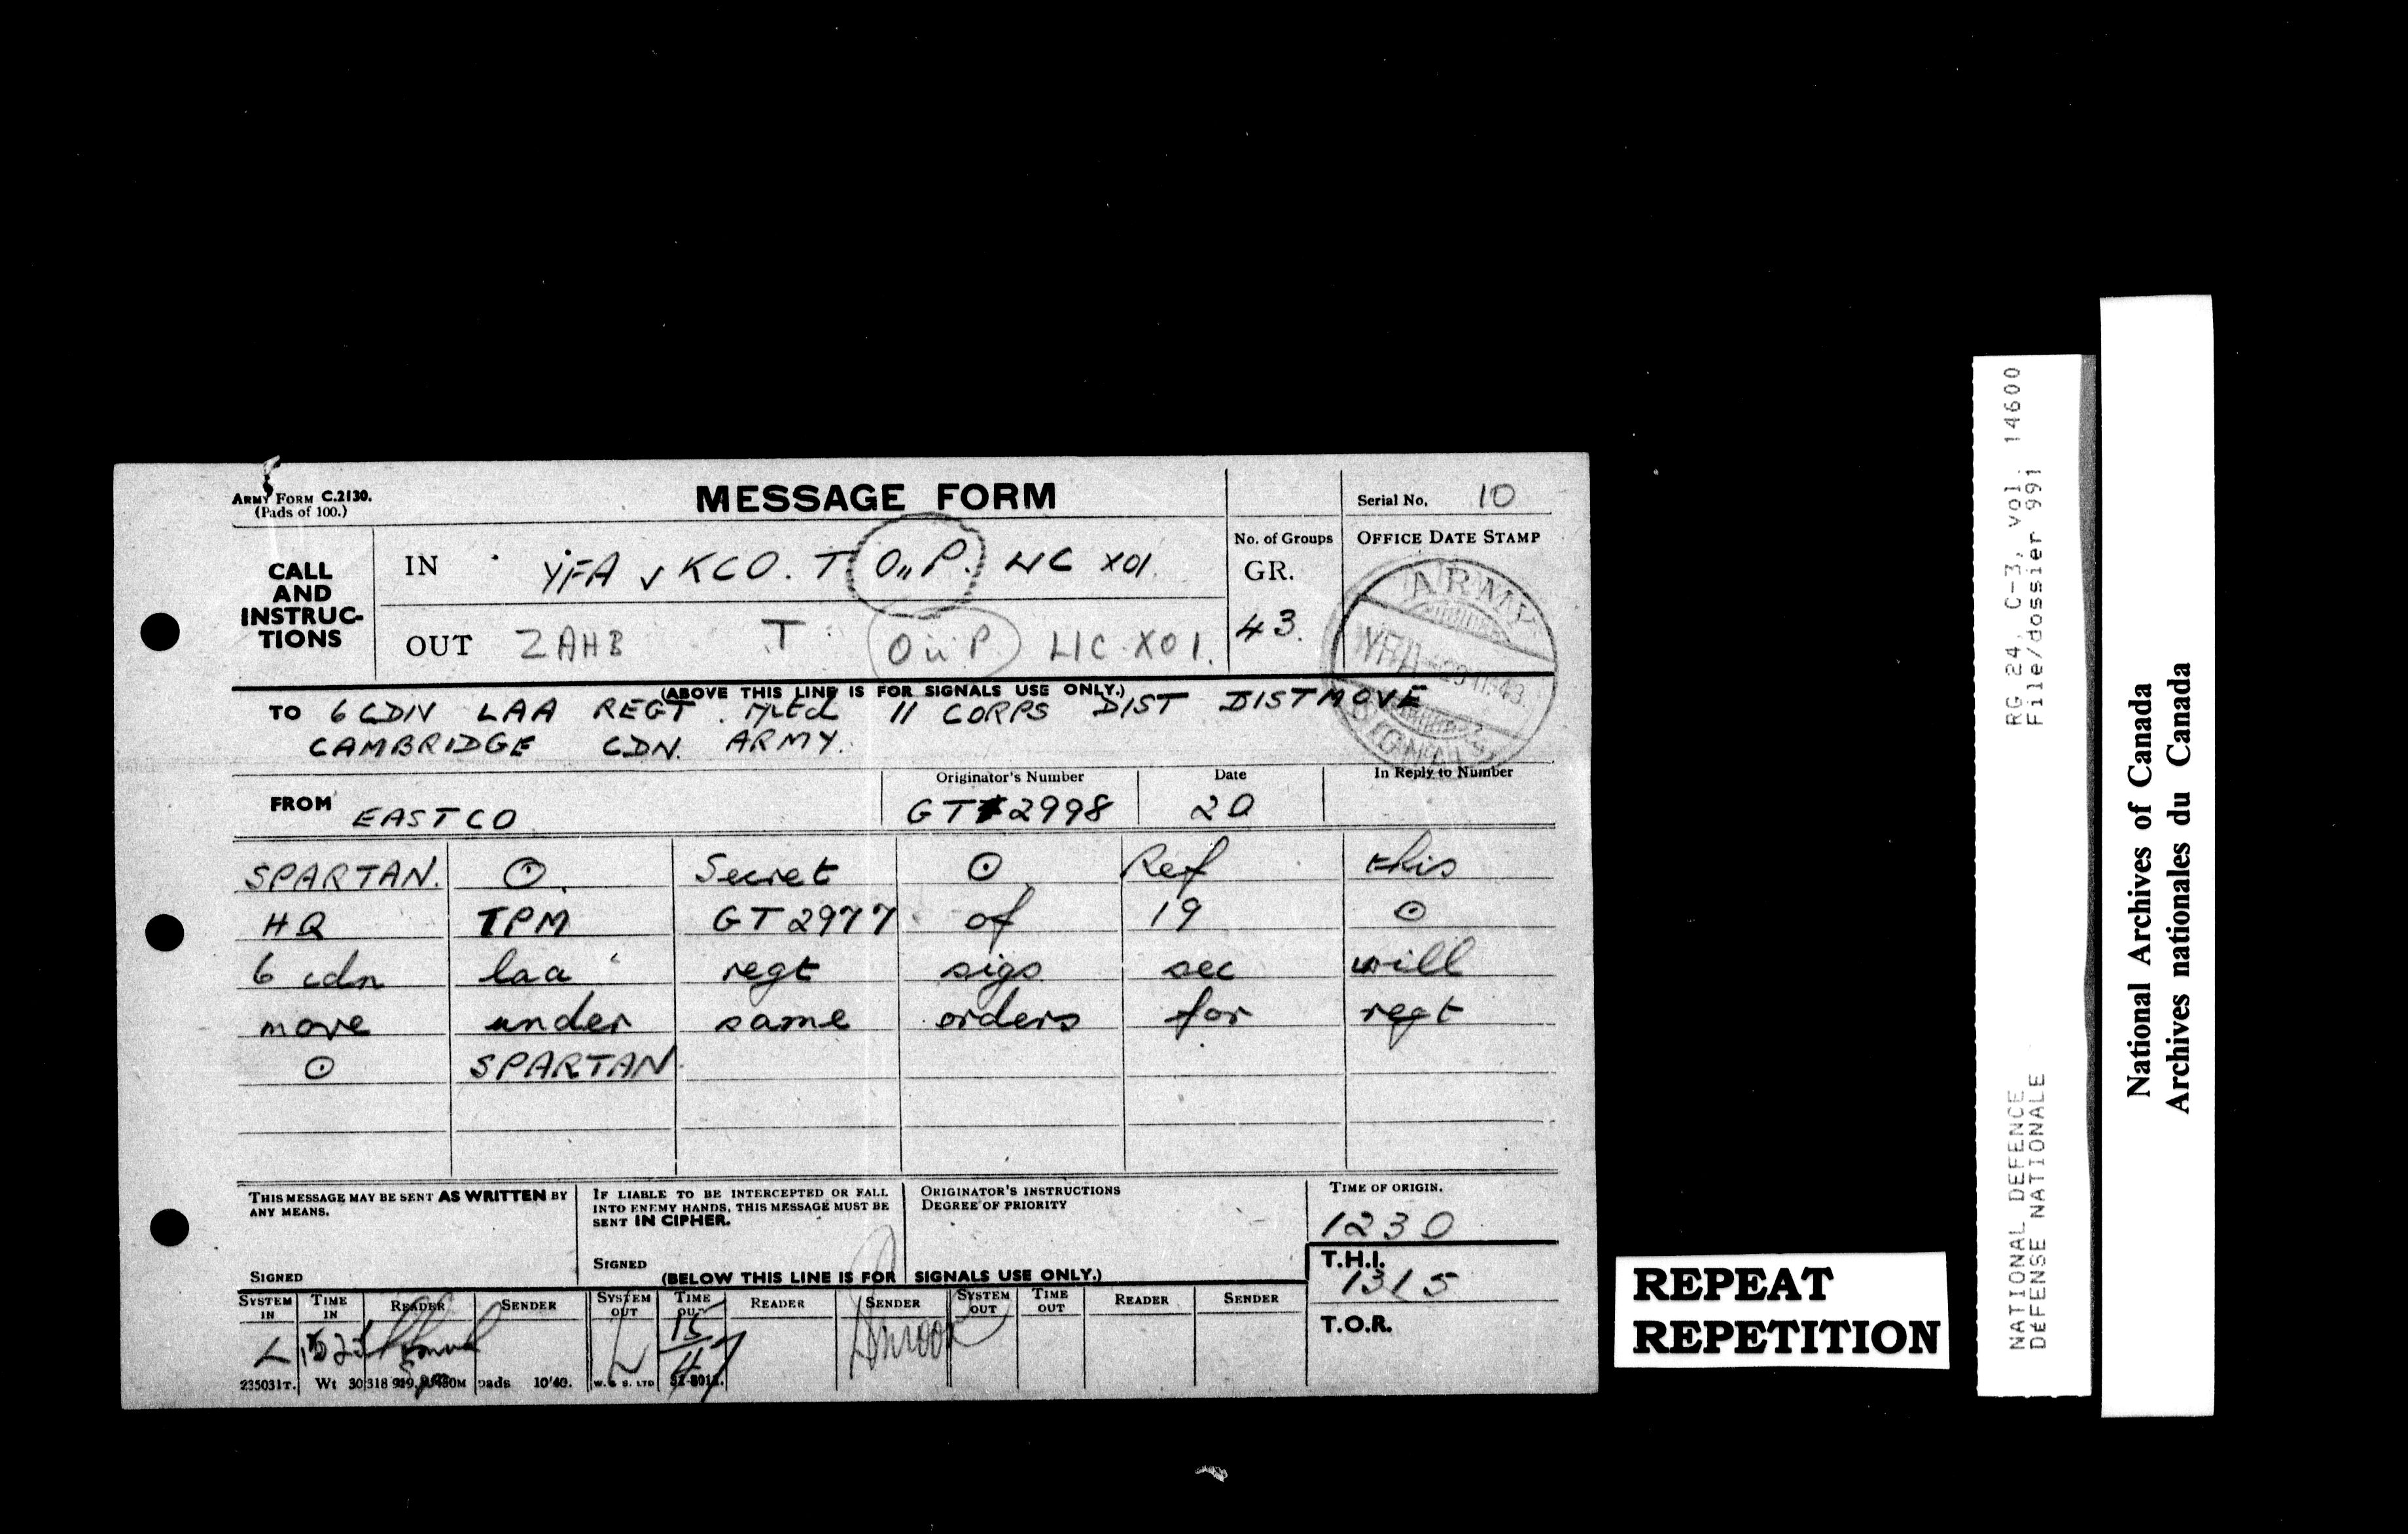 ARMY FORM C.2130.
(Pads of 100.)
MESSAGE FORM
Serial No. 10
CALL AND INSTRUC-TIONS
IN YFA v KCO. T O"P. LIC X01.
OUT ZAHB T O ü P LIC X01.
No. of Groups
GR.
43.
OFFICE DATE STAMP
ARMY
SIGNALS
(ABOVE THIS LINE IS FOR SIGNALS USE ONLY.)
TO 6 CDN LAA REGT. rptd 11 CORPS DIST DISTMOVE
CAMBRIDGE CDN. ARMY.
FROM EASTCO
Originator's Number
GT 2998
Date
20
In Reply to Number
SPARTAN. ⊙. Secret ⊙ Ref this
HQ TPM GT 2977 of 19 ⊙
6 cdn laa regt sigs sec will
move under same orders for regt
⊙ SPARTAN.
THIS MESSAGE MAY BE SENT AS WRITTEN BY
ANY MEANS.
SIGNED
IF LIABLE TO BE INTERCEPTED OR FALL
INTO ENEMY HANDS, THIS MESSAGE MUST BE
SENT IN CIPHER.
SIGNED
ORIGINATOR'S INSTRUCTIONS
DEGREE OF PRIORITY
TIME OF ORIGIN.
1230
T.H.I.
1315
T.O.R.
(BELOW THIS LINE IS FOR SIGNALS USE ONLY.)
SYSTEM IN TIME IN READER SENDER SYSTEM OUT TIME OUT READER SENDER SYSTEM OUT TIME OUT READER SENDER
L
15
47
235031T. Wt 30318 pads 10'40. W. & S. LTD
REPEAT
REPETITION
RG 24, C-3, vol. 14600
File/dossier 991
NATIONAL DEFENCE
DÉFENSE NATIONALE
National Archives of Canada
Archives nationales du Canada